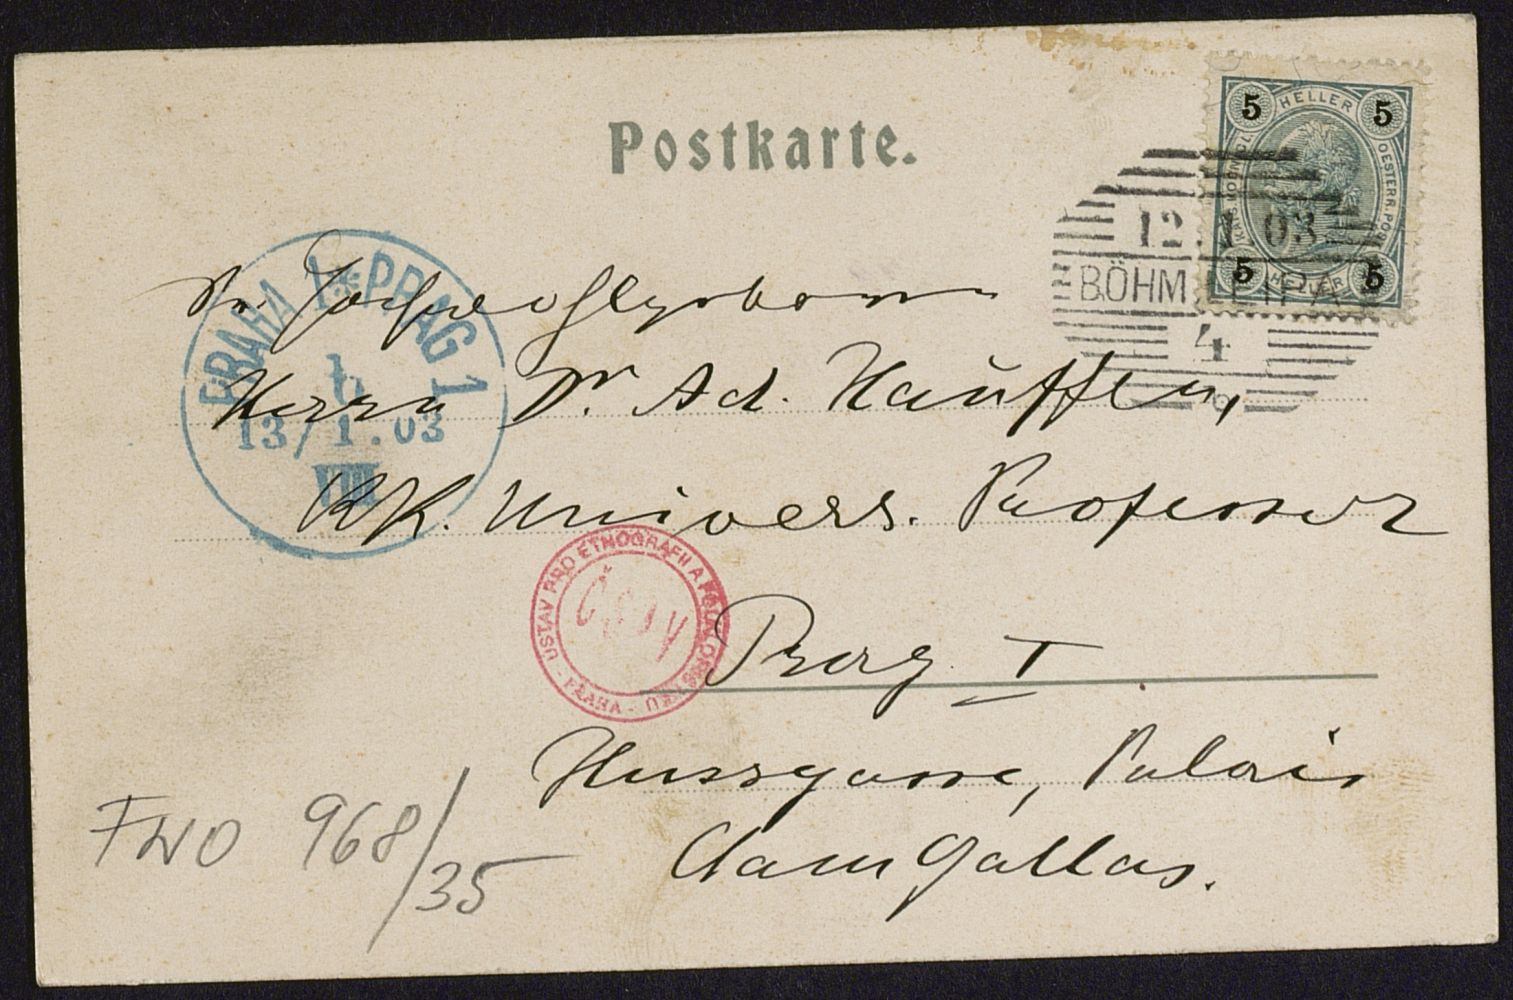 Postkarte.
5 HELLER 5
KAIS. KOENIGL. OESTERR. POST
5 HELLER 5
12.1.03
BÖHM. LEIPA
4
PRAHA 1 * PRAG 1
13/1.03
VIII
Sr. Hochwohlgeboren
Herrn Dr. Ad. Hauffen,
k k. Univers. Professor
ÚSTAV PRO ETNOGRAFII A FOLKLORISTIKU - PRAHA -
ČSAV
Prag I
Hussgasse, Palais
Clam Gallas.
FNO 968/35